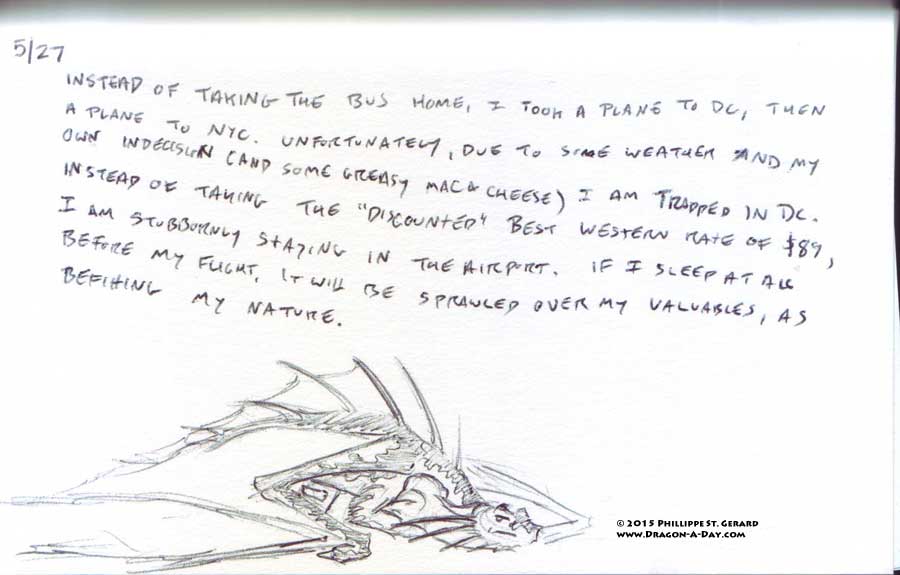 5/27
INSTEAD OF TAKING THE BUS HOME, I TOOK A PLANE TO DC, THEN
A PLANE TO NYC. UNFORTUNATELY, DUE TO SOME WEATHER AND MY
OWN INDECISION (AND SOME GREASY MAC & CHEESE) I AM TRAPPED IN DC.
INSTEAD OF TAKING THE "DISCOUNTED" BEST WESTERN RATE OF $89,
I AM STUBBORNLY STAYING IN THE AIRPORT. IF I SLEEP AT ALL
BEFORE MY FLIGHT, IT WILL BE SPRAWLED OVER MY VALUABLES, AS
BEFITTING MY NATURE.
© 2015 PHILLIPPE ST. GERARD
WWW.DRAGON-A-DAY.COM